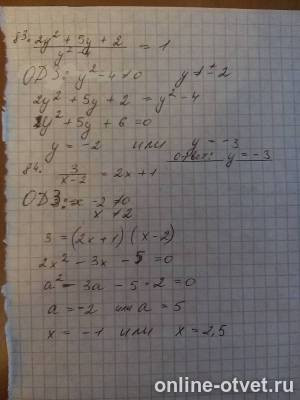 83. (2y² + 5y + 2)/(y² - 4) = 1
ОДЗ: y² - 4 ≠ 0 y ≠ ± 2
2y² + 5y + 2 = y² - 4
y² + 5y + 6 = 0
y = -2 или y = -3
Ответ: y = -3
84. 3/(x-2) = 2x + 1
ОДЗ: x - 2 ≠ 0
x ≠ 2
3 = (2x+1)(x-2)
2x² - 3x - 5 = 0
a² - 3a - 5·2 = 0
a = -2 или a = 5
x = -1 или x = 2,5
online-otvet.ru